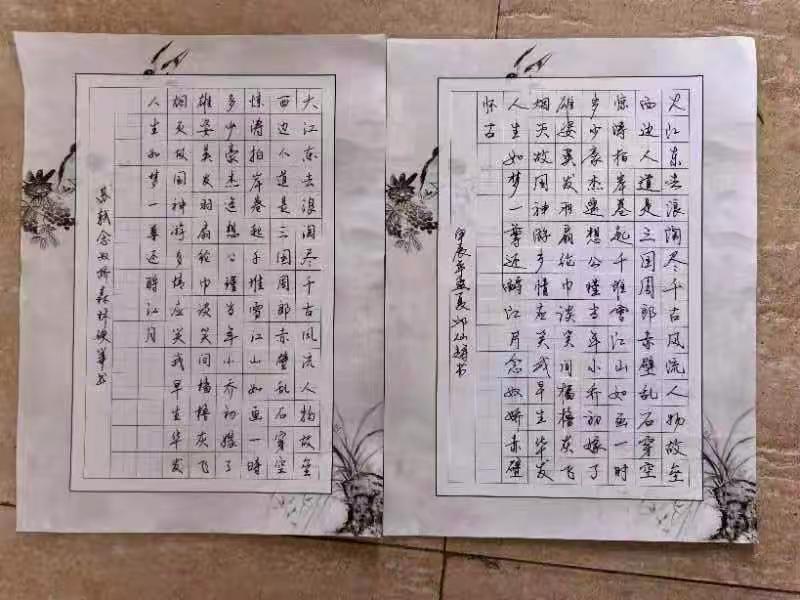 大江东去浪淘尽千古风流人物故垒
西边人道是三国周郎赤壁乱石穿空
惊涛拍岸卷起千堆雪江山如画一时
多少豪杰遥想公瑾当年小乔初嫁了
雄姿英发羽扇纶巾谈笑间樯橹灰飞
烟灭故国神游多情应笑我早生华发
人生如梦一尊还酹江月
苏轼念奴娇森林硬笔书
大江东去浪淘尽千古风流人物故垒
西边人道是三国周郎赤壁乱石穿空
惊涛拍岸卷起千堆雪江山如画一时
多少豪杰遥想公瑾当年小乔初嫁了
雄姿英发羽扇纶巾谈笑间樯橹灰飞
烟灭故国神游多情应笑我早生华发
人生如梦一尊还酹江月念奴娇赤壁
怀古
甲辰年孟夏